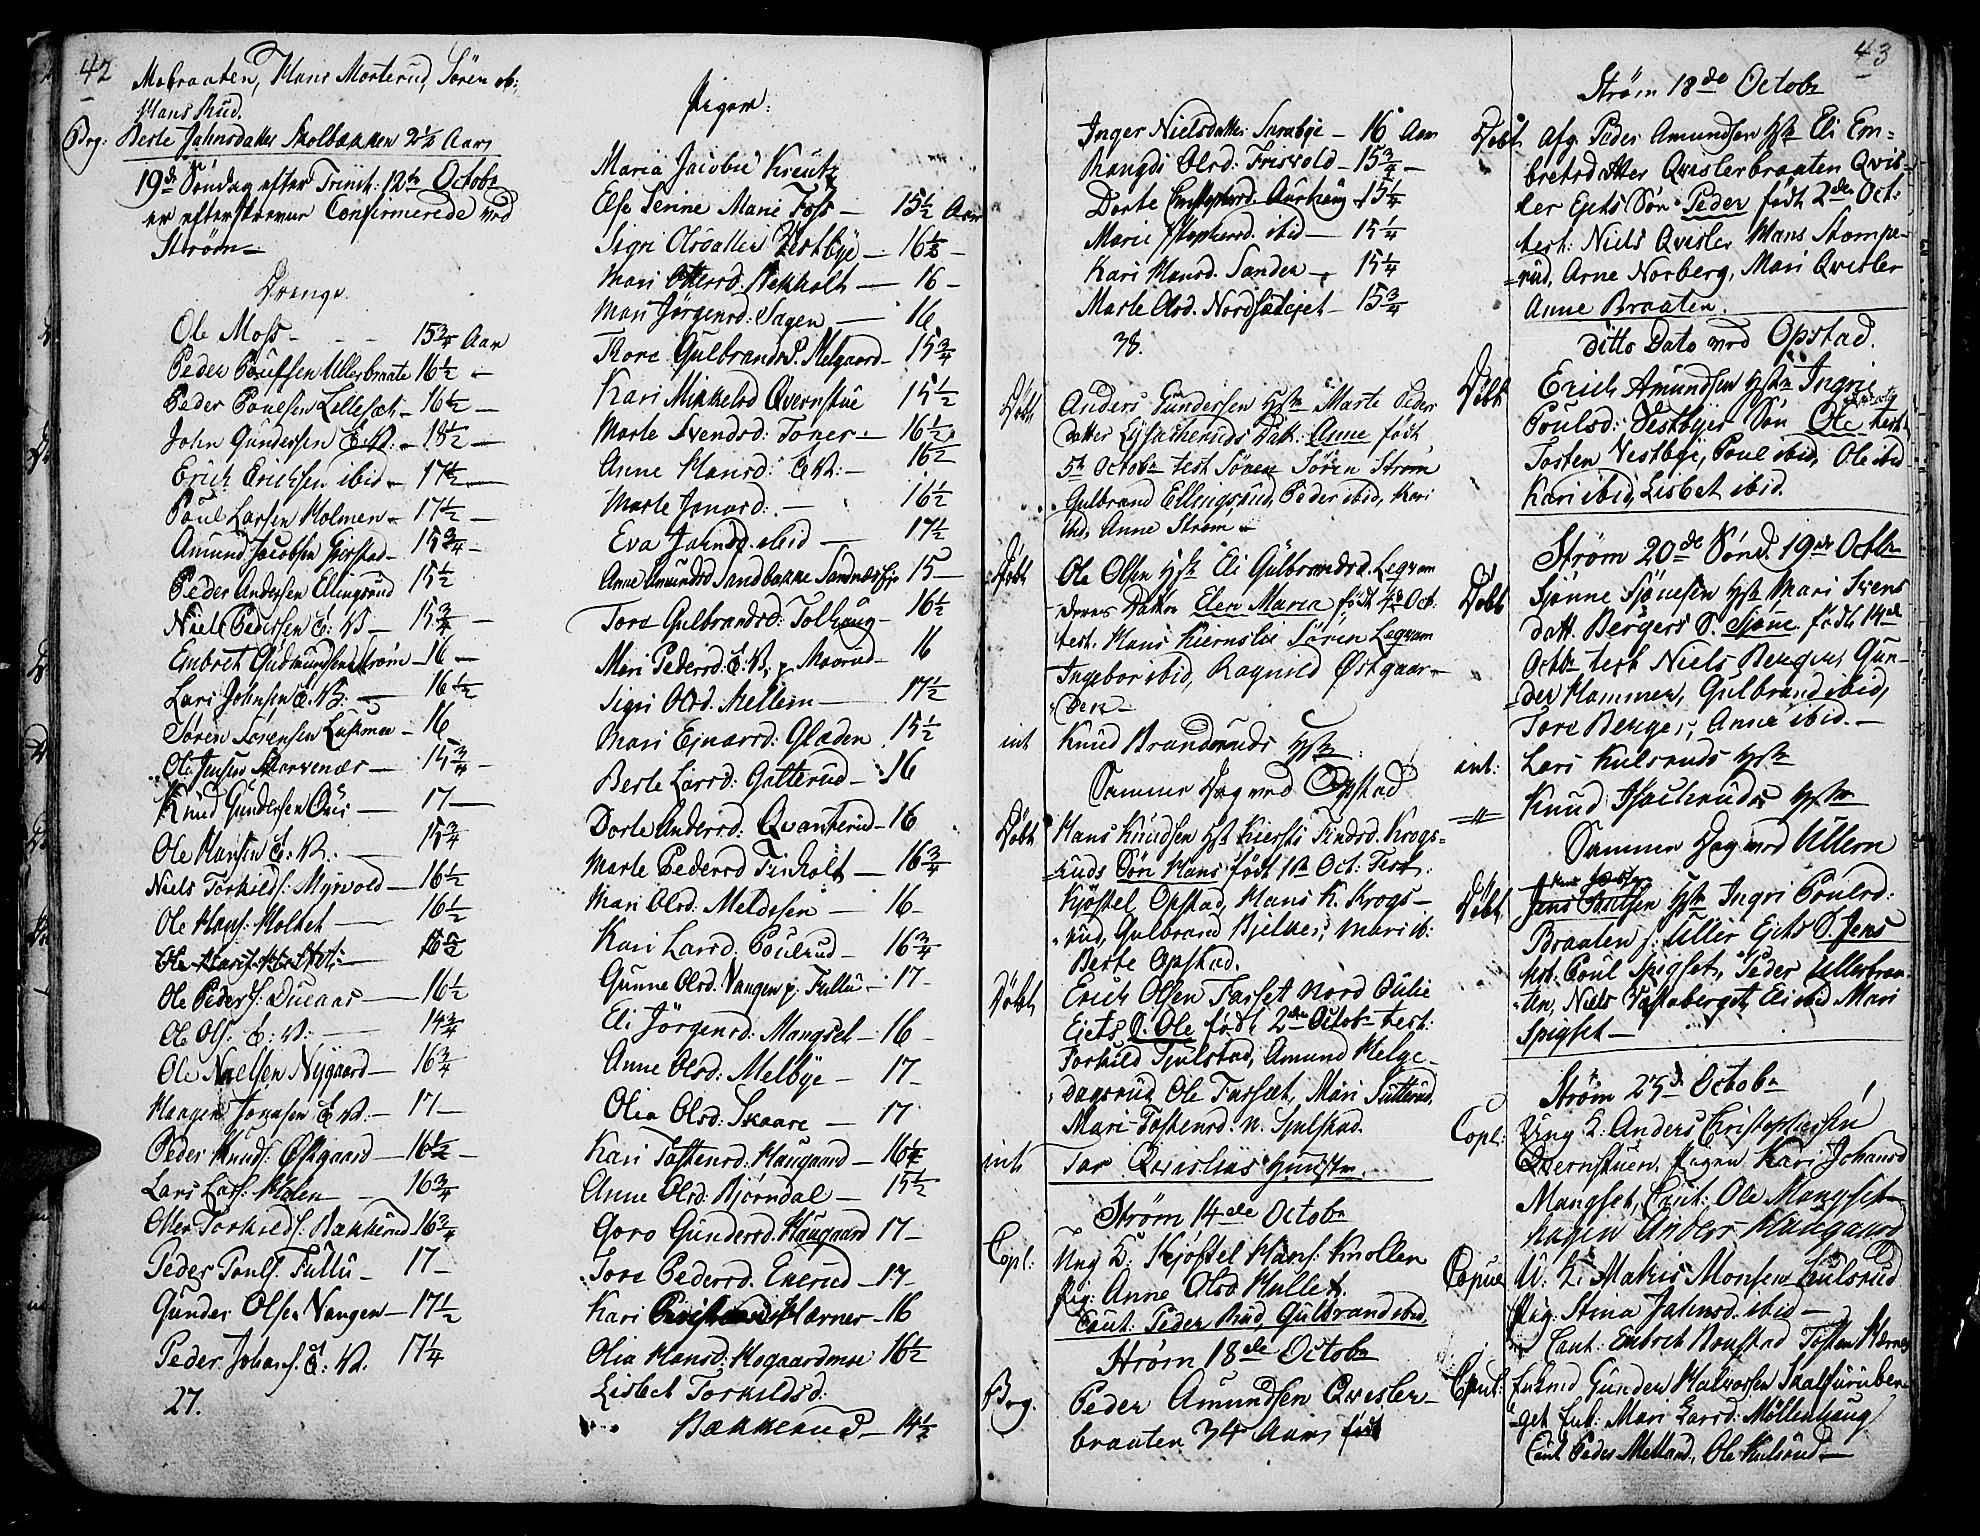 42
Mobraaten, Hans Morterud, Sören ib:
Hans Rud.
Beg: Berte Jahnsdatter Skolbækken 2½ Aars
19de Söndag efter Trinit: 12te Octobr
er efterskrevne Confirmerede ved
Ström
Drenge.
Ole Moss - - - 15¾ Aar
Peder Poulsen Ullerbraate 16½ -
Peder Poulsen Lillesæt - 16½ -
John Gundersen E: V: - 18½ -
Erich Erichsen ibid - 17½ -
Poul Larsen Holmen - 17½ -
Amund Jacobsen Girstad - 15¾ -
Peder Andersen Ellingsrud 15½
Niels Pedersen E: V - 15¾ -
Embret Gudmundsen Ström - 16 -
Lars Johnsen E. V: - 16½
Sören Sörensen - 16
Ole Jensen Skarvenær - 15¾ -
Knud Gundersen - 17 -
Ole Hansen E: V: - 15¾
Niels Torkilds: Myrvold - 16½
Ole Hans: Holtet - 16½
Ole Peders: - 16½
Ole Ols: E: V: - 14¾
Ole Nielsen Nygaard - 16¾
Haagen Jonasen E V: - 17 -
Peder Knuds: Østgaard - 16½ -
Lars Lars: Holen - 16¾
Otter Torkilds: Bækkerud 16¾
Peder Pouls. Fullu - 17 -
Gunder Olsen Vangen - 17½
Peder Johans: E: V: 17¼
27.
Piger:
Maria Jacobie Kreutz
Else Sinne Marie Foss - 15½ Aar
Sigri Olsdatter Vestbye - 16½ -
Mari Ottersd. Bekholt - 16 -
Mari Jörgensd: Sagen - 16
Thore Gulbrandsd. Melgaard - 15¾
Kari Mikkelsd Qvernstue 15½
Marte Svendsd: Toner - 16½
Anne Hansd: E V: - 16½
Marte Jonasd: - 16½
Eva Jahnsd. ibid - 17½
Anne Amundsd Sandbakke 15 -
Tore Gulbrandsd: Tolhaug - 16½
Mari Pedersd: E. V. p Moerud - 16
Sigri Olsd. Mellem - 17½
Mari Ejnarsd: Gladen 15½
Berte Larsd: Galterud - 16
Dorte Andersd: Qvanterud - 16
Marte Pedersd Finholt - 16¾
Mari Olsd: Meldesen - 16 -
Kari Larsd. Poulrud - 16¾
Gunne Olsd. Vangen p: Fullu - 17 -
Eli Jörgensd: Mangset - 16 -
Anne Olsd: Melbye - 17 -
Olia Olsd: Skaare - 17
Kari Tostensd: Haugaard - 16½
Anne Olsd: Bjørndal - 15½
Goro Gundersd. Haugaard 17 -
Tore Pedersd. Enerud - 17 -
Kari Hærnes - 16
Olia Hansd: Hogaardmoe 16½
Lisbet Torkildsd:
Bækkerud - 14½
Inger Nielsdatter - 16 Aar
Mangdi Olsd: Frisvold - 15¾ -
Dorte Christophersd. Aurhaug 15¼
Marie Stephersd. ibid - 15¼
Kari Hansd. Sander - 15¼
Marte Olsd. Nordsætejet - 15¾
38.
Döbt Anders Gundersen Hstr Marte Peder
datter Datt: Anne født
5te Octobr test Sören Ström
Gulbrand Ellingsrud, Peder ibid, Kari
ibd, Anne Ström
Döbt Ole Olsen Hstr Eli Gulbrandsd. Legvam
deres Datter Elen Maria født 4de Oct:
test: Hans Kiernslie Sören Legvam
Ingebor ibid, Ragnild Østgaar-
den
int Knud Branderuds Hstr
Samme Dag ved Opstad
Döbt Hans Knudsen Hstr Kiersti Findsd. Krogs-
ruds Sön Hans født 1te Oct: Test:
Kjöstel Opstad, Hans K. Krogs-
rud, Gulbrand Bjelke, Mari ib:
Berte Opstad.
Döbt Erich Olsen Farset nord Oulie
Ejets S. Ole født 2den Octobr test:
Torkild Sjulstad, Amund Helge-
dagsrud, Ole Farsæt, Mari Sutterud,
Mari Tostensd: n. Sjulstad.
int Tor Qværslies Hustr.
Ström 14de Octobr
Copl: Ung K: Kjöstel Hans: Knollen
Pig: Anne Olsd Hullet.
Caut: Peder Rud, Gulbrand ibid.
Ström 18de Octobr
Beg. Peder Amundsen Qvisler-
braaten 34 Aar,
43
Ström 18de Octobr
Döbt afg. Peder Amundsen Hstr Eli Em-
bretsdatter Qvislerbraaten Qvis-
ler Ejets Sön Peder født 2den Oct:
test: Niels Qvisler Hans Stompe-
rud, Arne Norberg, Mari Qvisler
Anne Braaten.
ditto Dato ved Opstad.
Döbt Erich Amundsen Hstr Ingrie
Poulsd: Vestbyes Sön Ole test
Tosten Vestbye, Poul ibid, Ole ibid
Kari ibid, Lisbet ibid.
Ström 20de Sönd. 19de Octbr
Döbt Sjønne Sjønesen Hstr Mari Svens
datt. Bergers S. Sjøne født 14de
Octbr test Niels Berger, Gun-
der Hammer, Gulbrand ibid,
Tore Berger, Anne ibid. -
int: Lars Kulsruds Hstr
=//= Knud Hstr
Samme Dag ved Ullern
Döbt Hstr Ingri Poulsd:
Braaten p: Uller Ejets S. Jens
test. Poul Spigset, Peder Ullerbraa-
ten, Niels Eli ibid Mari
Spigset -
Ström 25de Octobr
Copl: Ung K: Anders Christophersen
Qvernstuen, Pigen Kari Johansd
Mangset, Caut: Ole Mangset
hagen Anders Haugaard
Copul U: K: Mathis Monsen Kulsrud
Pig. Stina Jahnsd. ibid -
Caut: Embret Tosten Hærnes
Copul: Enkmd Gunder Halvorsen Skalfuruber-
get Enk: Mari Larsd: Möllerhaug
Caut Peder Melland, Ole Kulsrud -